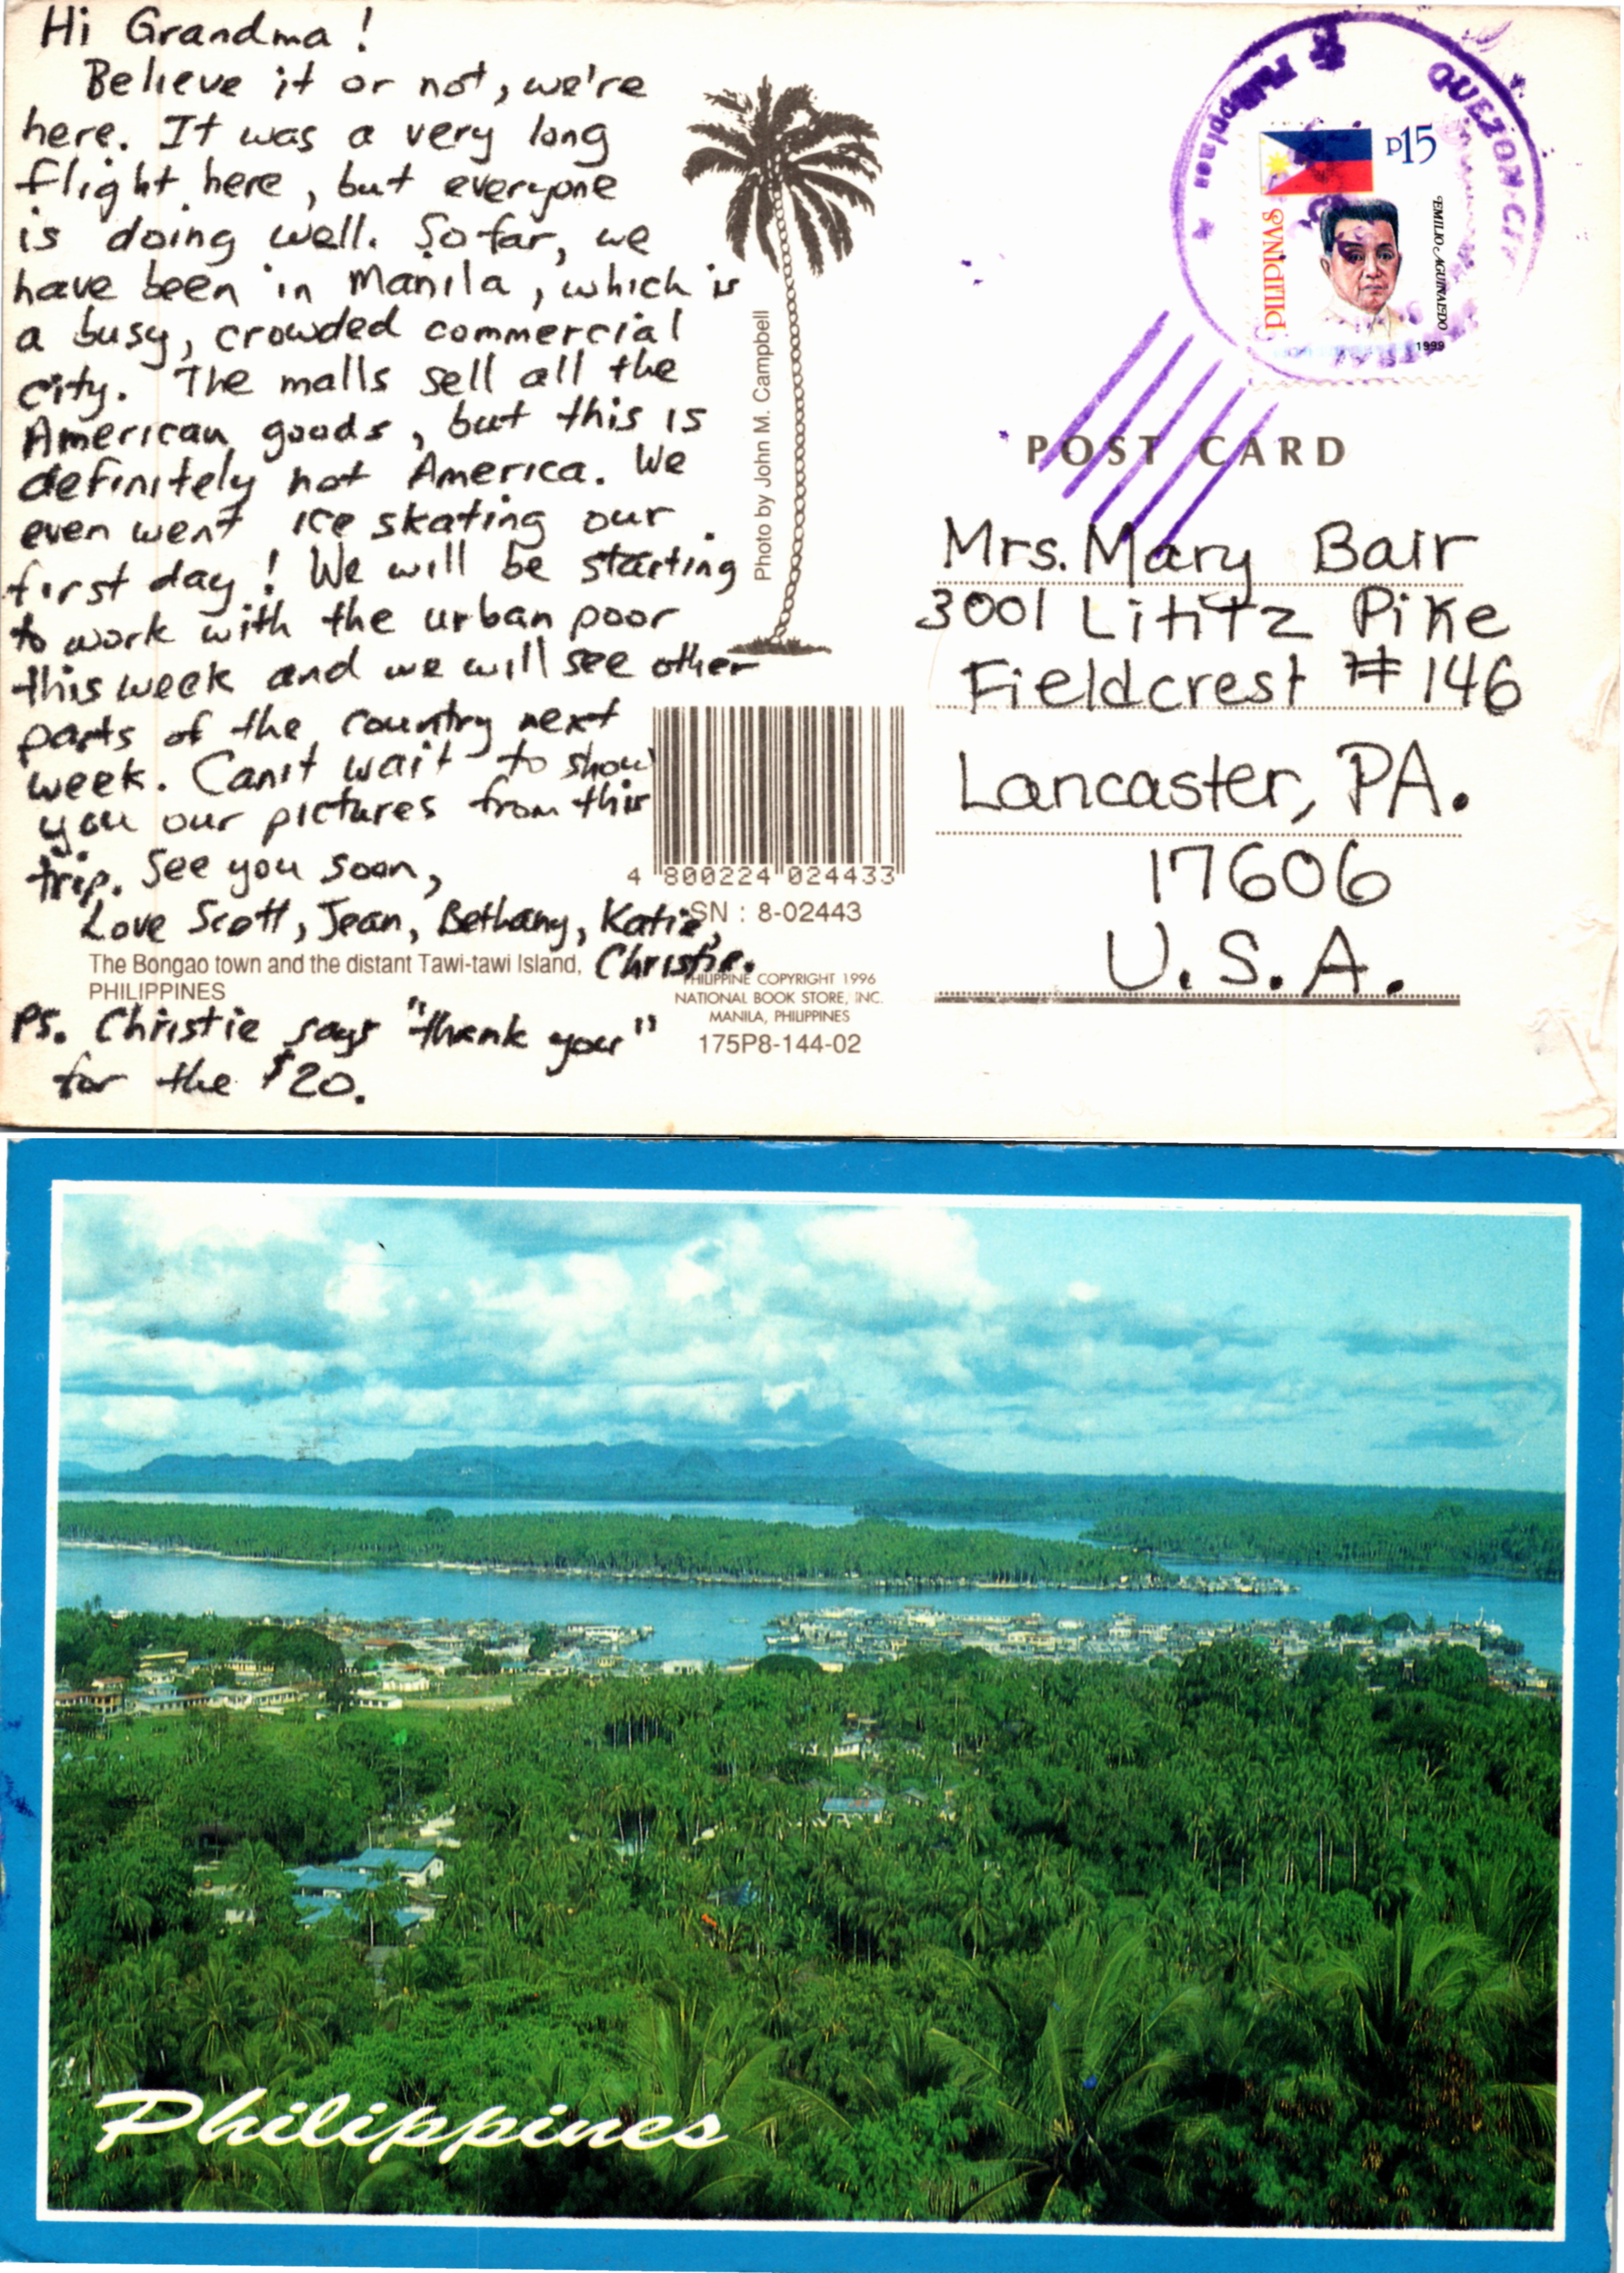 Hi Grandma!
Believe it or not, we're
here. It was a very long
flight here, but everyone
is doing well. So far, we
have been in Manila, which is
a busy, crowded commercial
city. The malls sell all the
American goods, but this is
definitely not America. We
even went ice skating our
first day! We will be starting
to work with the urban poor
this week and we will see other
parts of the country next
week. Can't wait to show
you our pictures from this
trip. See you soon,
Love Scott, Jean, Bethany, Katie,
Christie.
The Bongao town and the distant Tawi-tawi Island,
PHILIPPINES
PS. Christie says "thank you"
for the $20.
Photo by John M. Campbell
4 800224 024433
SN : 8-02443
PHILIPPINE COPYRIGHT 1996
NATIONAL BOOK STORE, INC.
MANILA, PHILIPPINES
175P8-144-02
Philippines
QUEZON CITY
PILIPINAS
P15
EMILIO AGUINALDO
1999
POST CARD
Mrs. Mary Bair
3001 Lititz Pike
Fieldcrest #146
Lancaster, PA.
17606
U.S.A.
Philippines